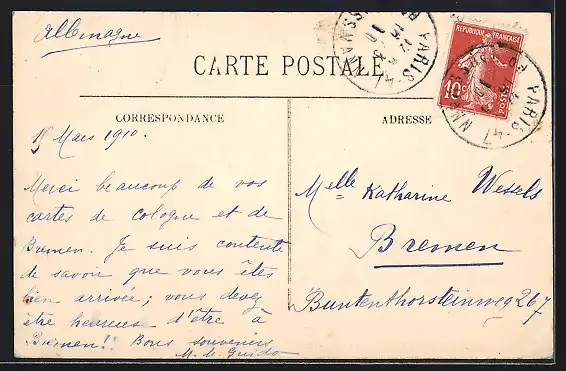 Allemagne
CARTE POSTALE
CORRESPONDANCE
ADRESSE
REPUBLIQUE FRANÇAISE
10c
POSTES
PARIS-47
PARIS-47
18 Mars 1910.
Merci beaucoup de vos
cartes de Cologne et de
Bremen. Je suis contente
de savoir que vous êtes
bien arrivée; vous devez
être heureuse d'être à
Bremen!! Bons souvenirs
M. de Guido
Melle Katharine Wessels
Bremen
Buntenthorsteinweg 267